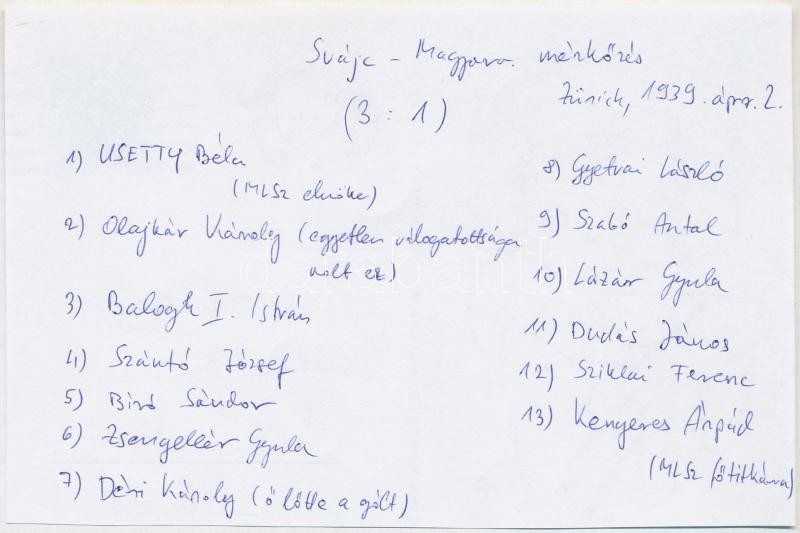 Svájc - Magyaro. mérkőzés
Zürich, 1939. ápr. 2.
(3 : 1)
1) USETTY Béla
(MLSz elnöke)
2) Olajkár Károly (egyetlen válogatottsága
volt ez)
3) Balogh I. István
4) Szántó József
5) Biró Sándor
6) Zsengellér Gyula
7) Déri Károly (ő lőtte a gólt)
8) Gyetvai László
9) Szabó Antal
10) Lázár Gyula
11) Dudás János
12) Sziklai Ferenc
13) Kenyeres Árpád
(MLSz főtitkára)
darabanth